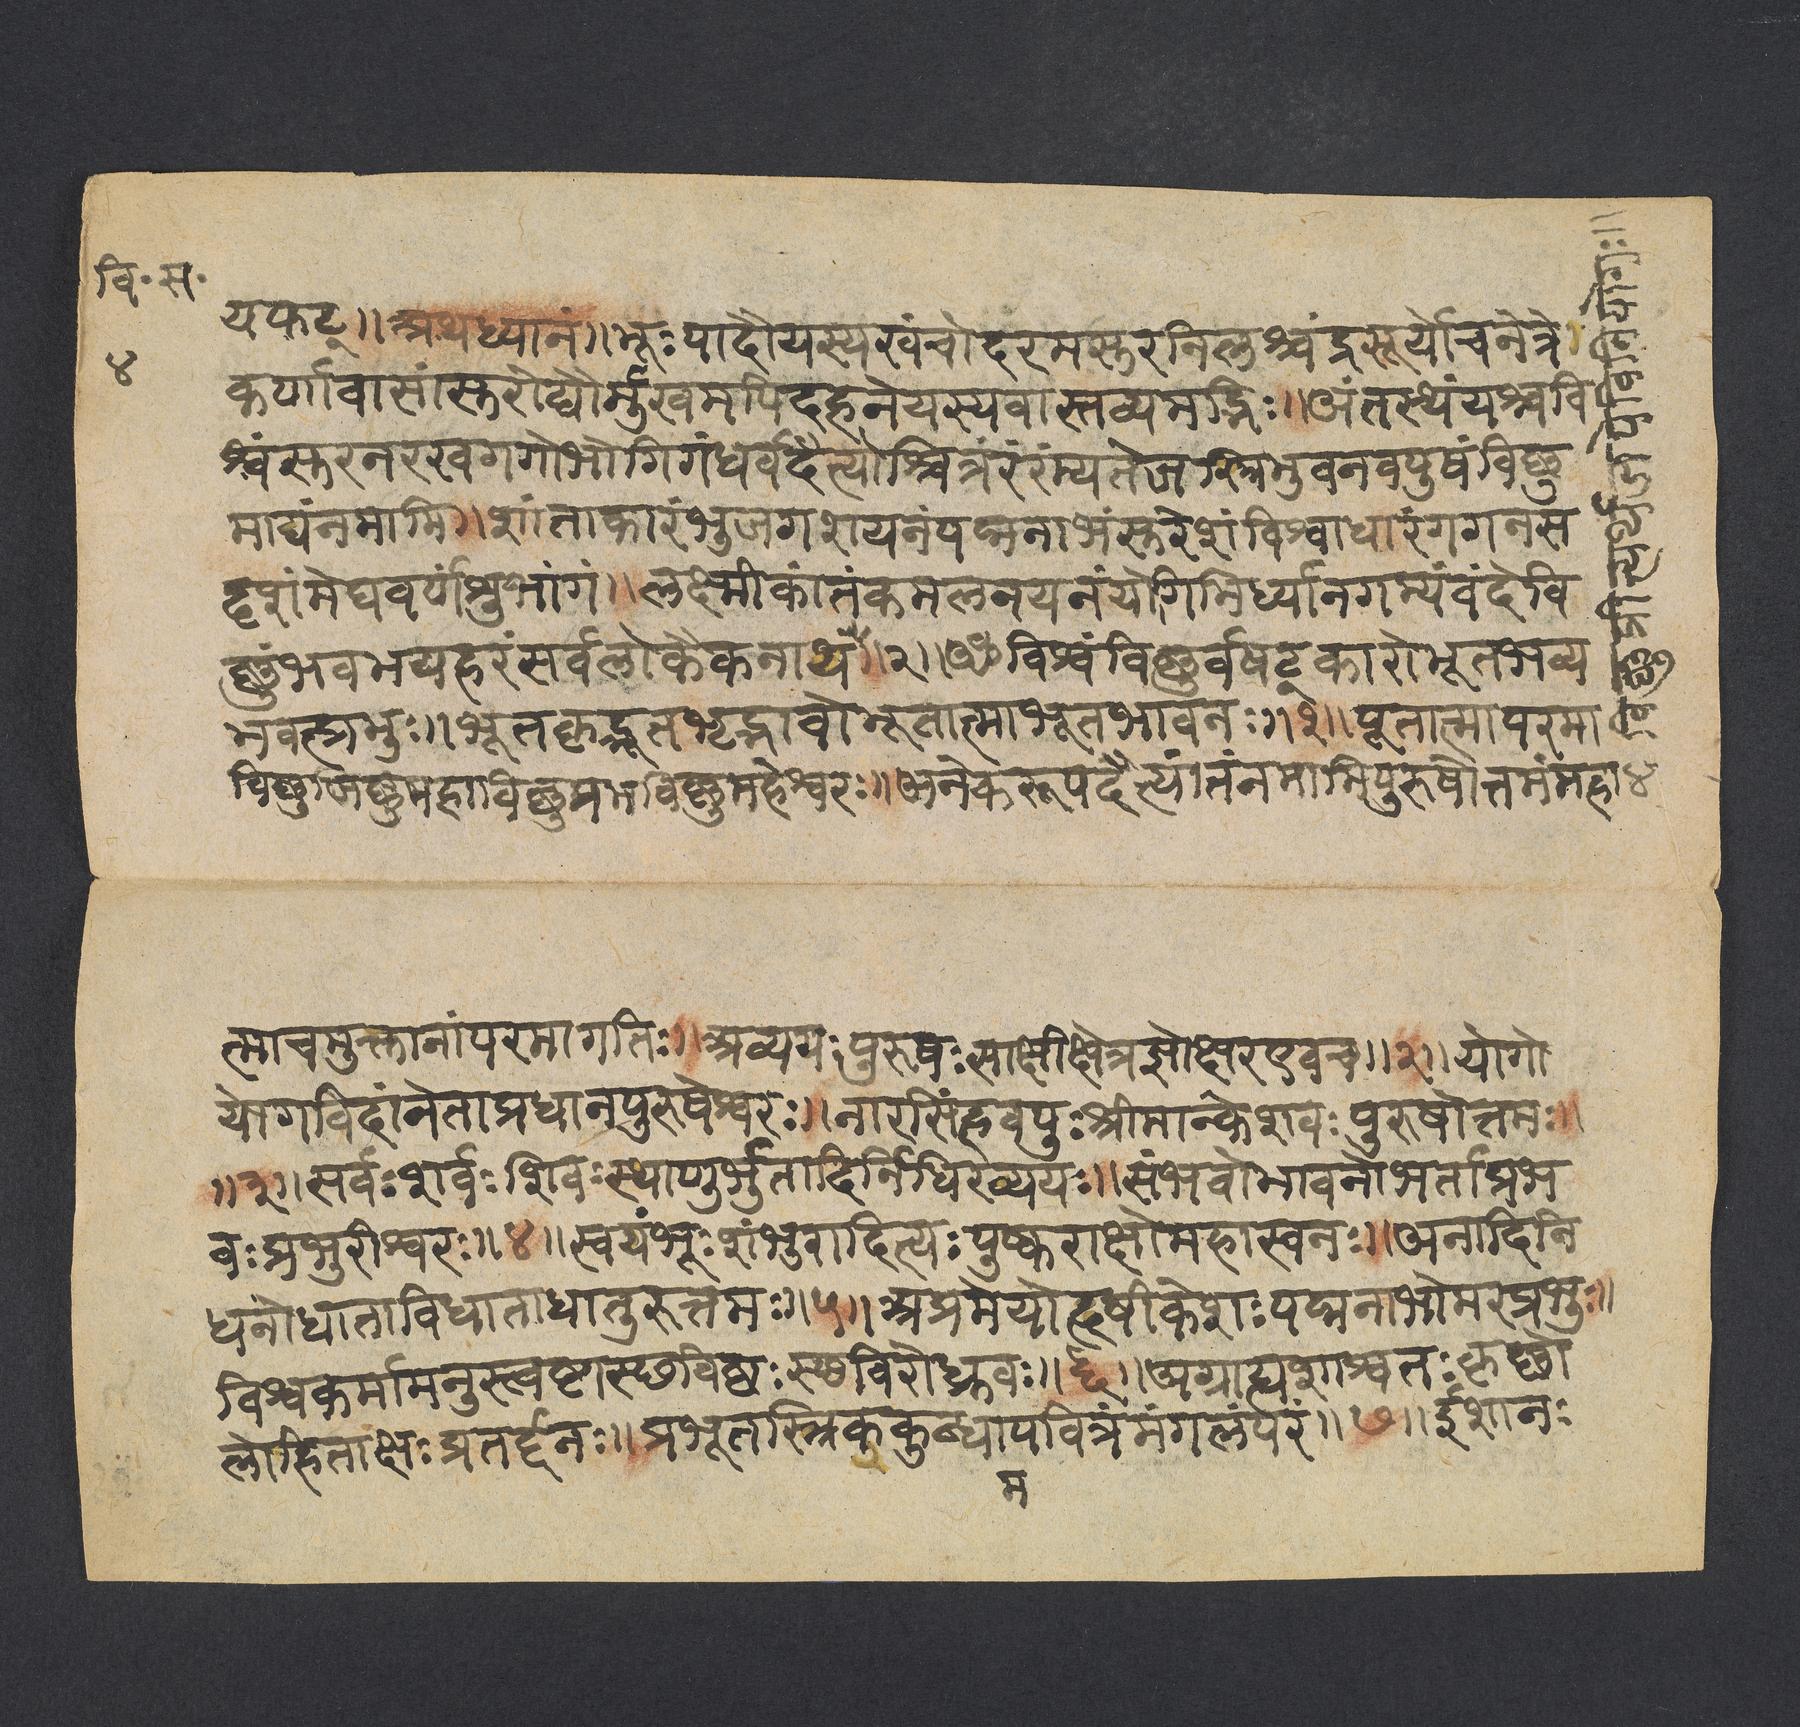 वि॰ स॰
४
यफट्॥अथध्यानं॥भूःपादौयस्यखंचोदरमसुरनिलश्चंद्रसूर्योचनेत्रे
कर्णावासांसुरोद्यौर्मुखमपिदहनेयस्यवास्तव्यमब्धिः॥अंतस्थंयश्चवि
श्वंसुरनरखगगोभोगिगंधर्वदैत्योश्चित्रंरंरंम्यतेजस्त्रिभुवनवपुषंविष्णु
माद्यंनमामि॥शांताकारंभुजगशयनंपद्मनाभंसुरेशंविश्वाधारंगगनस
दृशंमेघवर्णंशुभांगं॥लक्ष्मीकांतंकमलनयनंयोगिभिर्ध्यानगम्यंवंदेवि
ष्णुंभवभयहरंसर्वलोकैकनाथं॥२॥ॐविश्वंविष्णुर्वषट्कारोभूतभव्य
भवत्प्रभुः॥भूतकृद्भूतभृद्भावोभूतात्माभूतभावनः॥१॥पूतात्मापरमा
विष्णुजिष्णुमहाविष्णुप्रभविष्णुमहेश्वरः॥अनेकरूपदैत्यांतंनमामिपुरुषोत्तमंमहा४
त्माचमुक्तानांपरमागतिः॥अव्ययःपुरुषःसाक्षीक्षेत्रज्ञोक्षरएवच॥२॥योगो
योगविदांनेताप्रधानपुरुषेश्वरः॥नारसिंहवपुःश्रीमान्केशवःपुरुषोत्तमः॥
॥३॥सर्वःशर्वःशिवःस्थाणुर्भुतादिर्निधिरव्ययः॥संभवोभावनोभर्ताप्रभ
वःप्रभुरीश्वरः॥४॥स्वयंभूःशंभुरादित्यःपुष्कराक्षोमहास्वनः॥अनादिनि
धनोधाताविधाताधातुरुत्तमः॥५॥अप्रमेयोहृषीकेशःपद्मनाभोमरप्रभुः॥
विश्वकर्मामनुस्त्वष्टास्छविष्ठःस्छविरोध्रुवः॥६॥अग्राह्यशाश्वतःकृष्णो
लोहिताक्षःप्रतर्द्दनः॥प्रभूतस्त्रिककुब्धापवित्रंमंगलंपरं॥७॥ईशानः
म